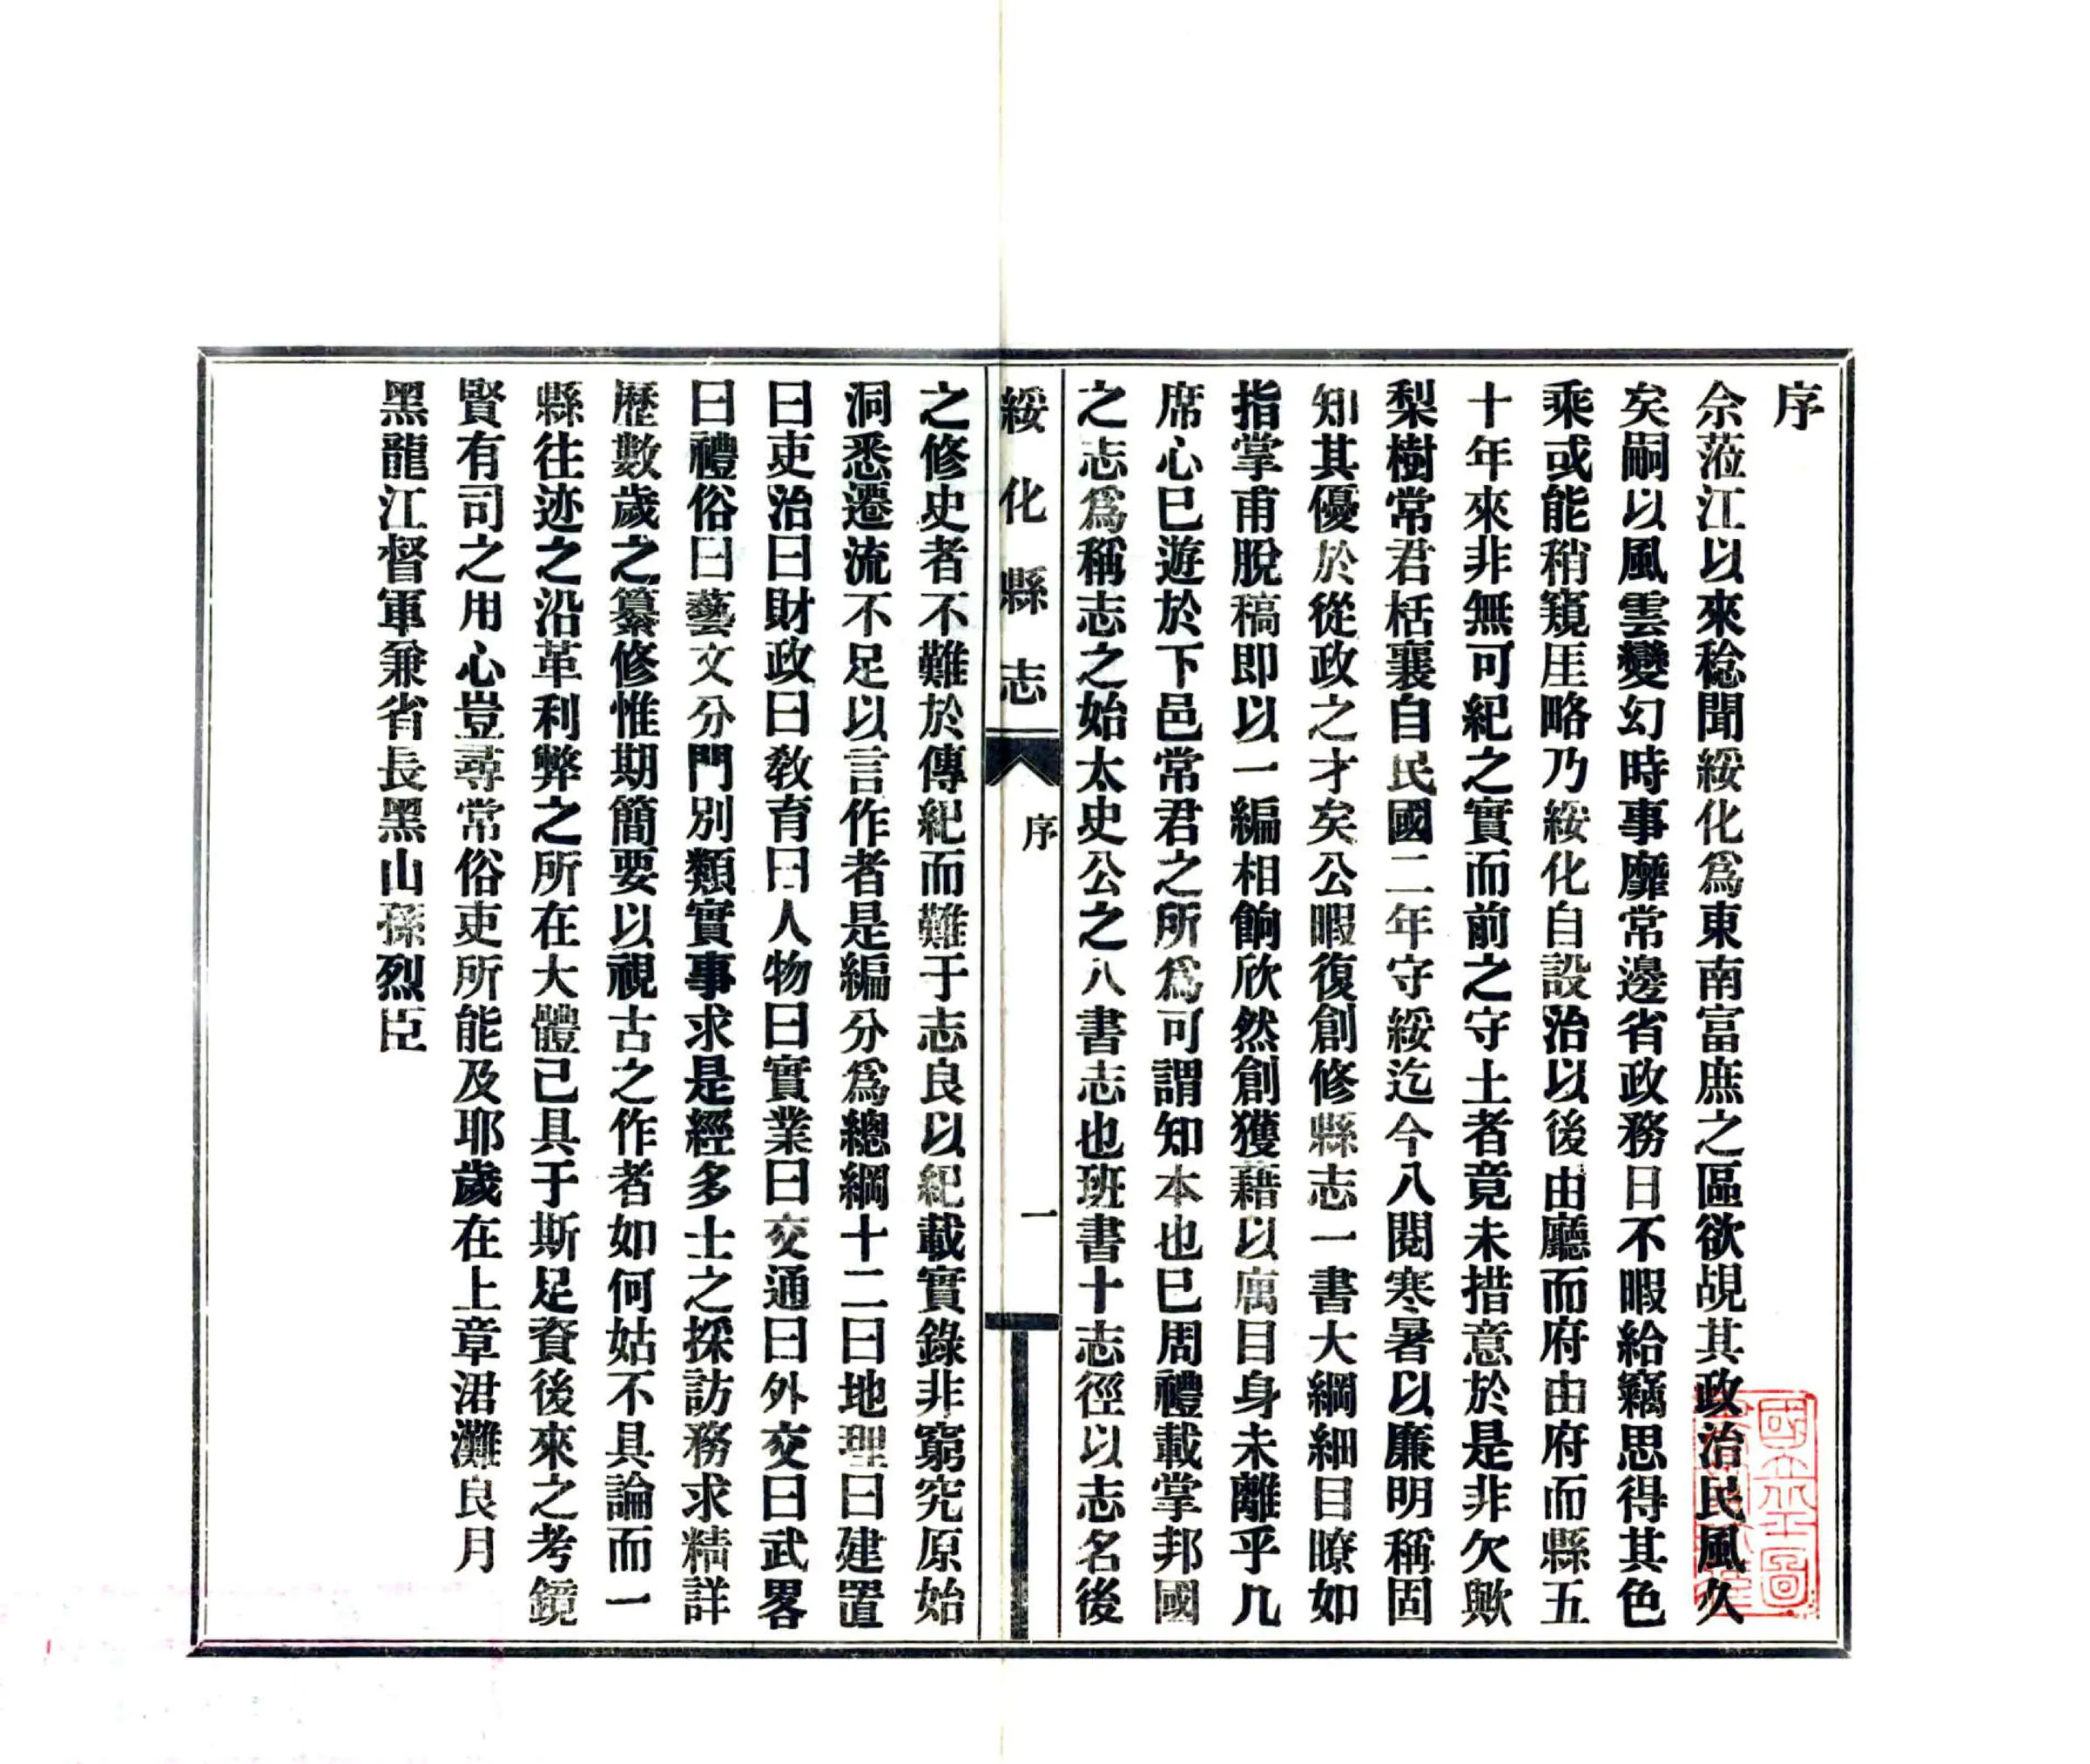 序
余蒞江以來稔聞綏化爲東南富庶之區欲覘其政治民風久
矣嗣以風雲變幻時事靡常邊省政務日不暇給竊思得其邑
乘或能稍窺厓略乃綏化自設治以後由廳而府由府而縣五
十年來非無可紀之實而前之守土者竟未措意於是非欠歟
梨樹常君栝襄自民國二年守綏迄今八閱寒暑以廉明稱固
知其優於從政之才矣公暇復創修縣志一書大綱細目瞭如
指掌甫脫稿即以一編相餉欣然創獲藉以寓目身未離乎几
席心已遊於下邑常君之所爲可謂知本也已周禮載掌邦國
之志爲稱志之始太史公之八書志也班書十志徑以志名後
綏化縣志
序
一
之修史者不難於傳紀而難于志良以紀載實錄非窮究原始
洞悉遷流不足以言作者是編分爲總綱十二曰地理曰建置
曰吏治曰財政曰敎育曰人物曰實業曰交通曰外交曰武畧
曰禮俗曰藝文分門別類實事求是經多士之採訪務求精詳
歷數歲之纂修惟期簡要以視古之作者如何姑不具論而一
縣往迹之沿革利弊之所在大體已具于斯足資後來之考鏡
賢有司之用心豈尋常俗吏所能及耶歲在上章涒灘良月
黑龍江督軍兼省長黑山孫烈臣